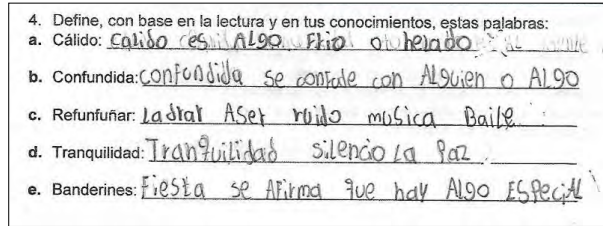 4. Define, con base en la lectura y en tus conocimientos, estas palabras:
a. Cálido: Calido es ALGO FRio o helado
b. Confundida: confundida se confude con ALguien o ALGO
c. Refunfuñar: Ladrar ASer ruido musica Baile
d. Tranquilidad: Tranquilidad silencio La Paz
e. Banderines: Fiesta se AFirma que hay ALgo ESPeciAL